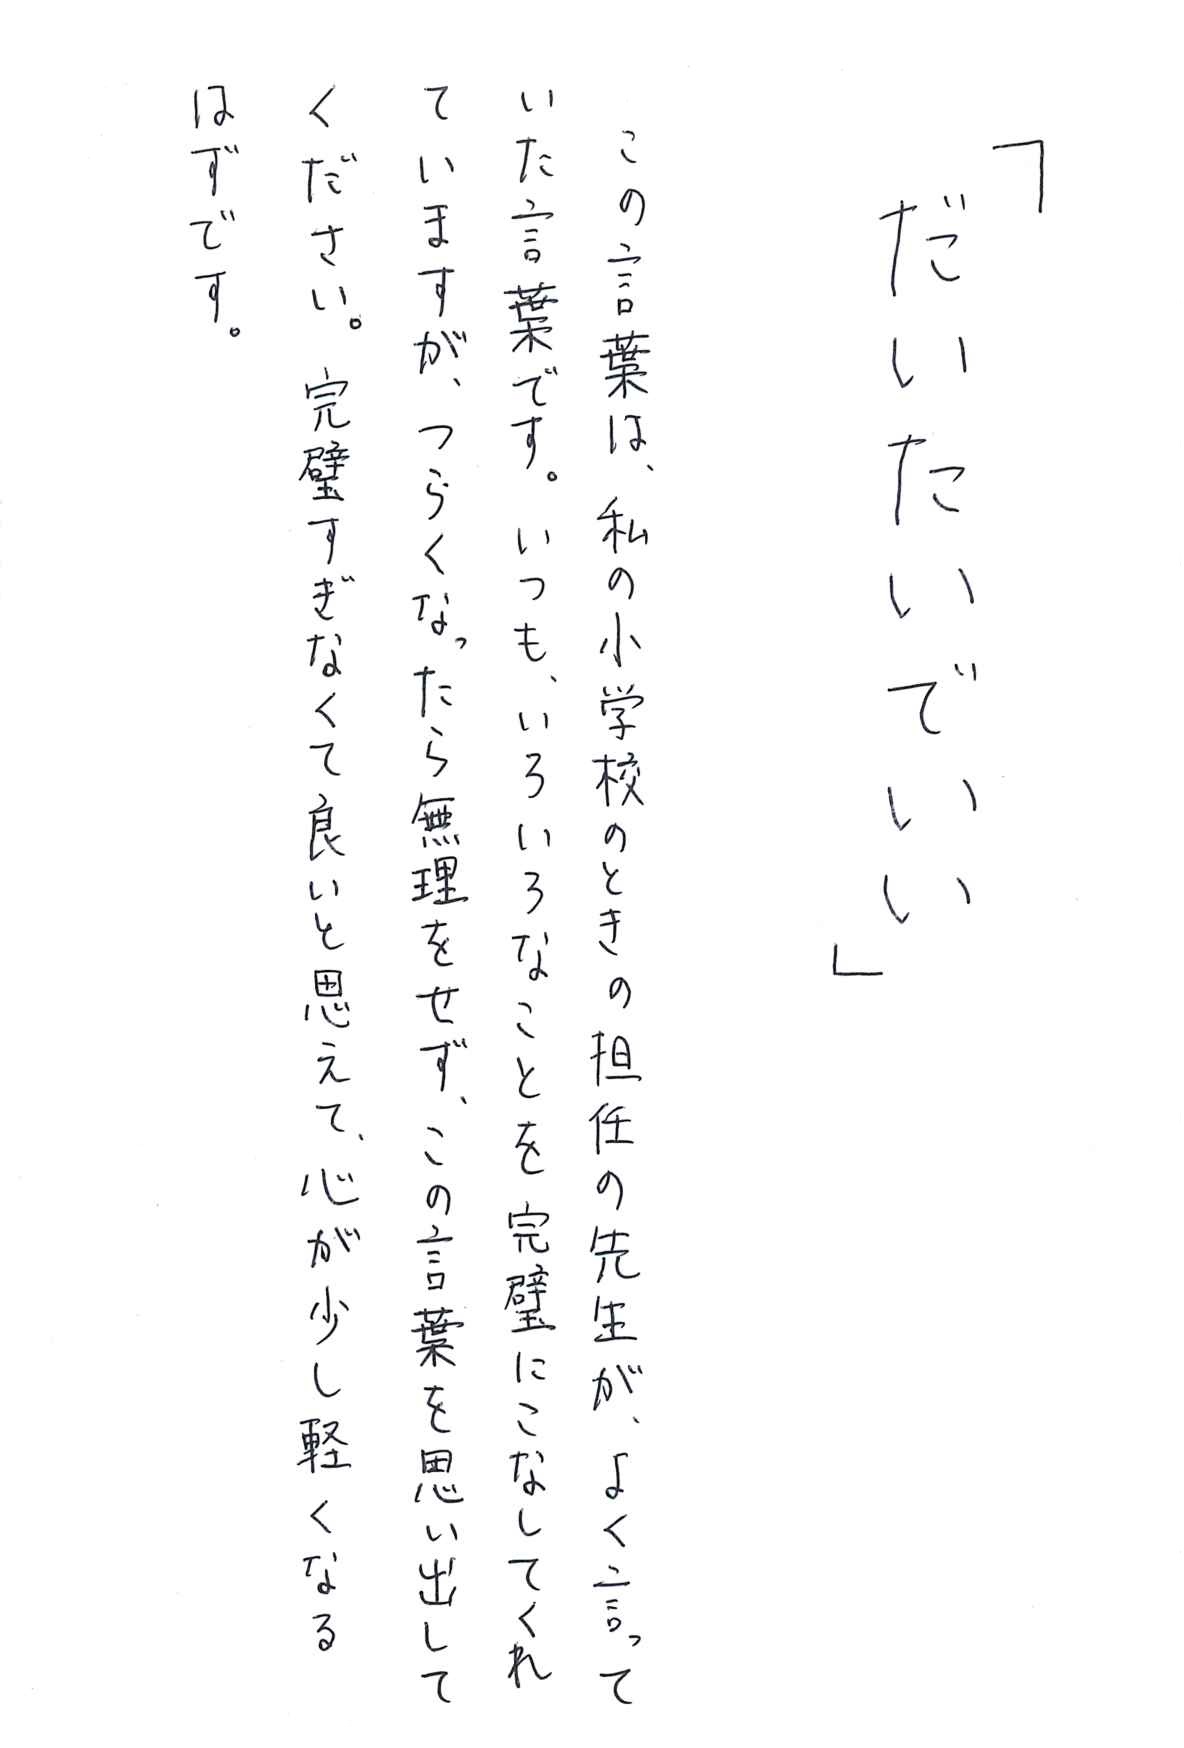 「だいたいでいい」
この言葉は、私の小学校のときの担任の先生が、よく言って
いた言葉です。いつも、いろいろなことを完璧にこなしてくれ
ていますが、つらくなったら無理をせず、この言葉を思い出して
ください。完璧すぎなくて良いと思えて、心が少し軽くなる
はずです。